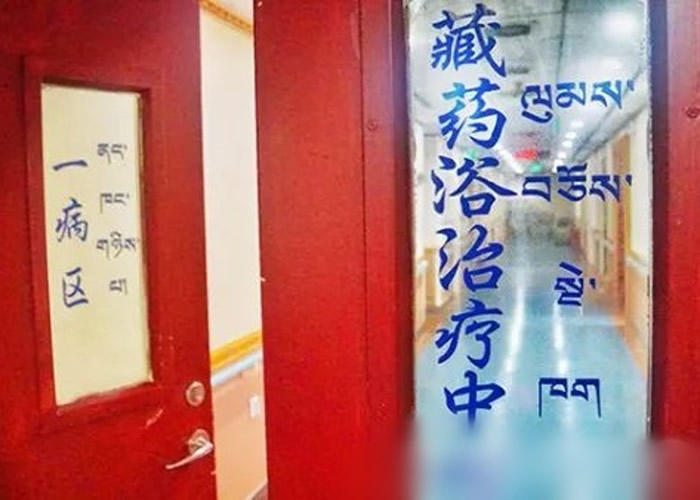 一病区
ནད་
ཁང་
གཉིས་
པ།
藏药浴治疗中
ལུམས་
བཅོས་
ལྟེ་
ཁག